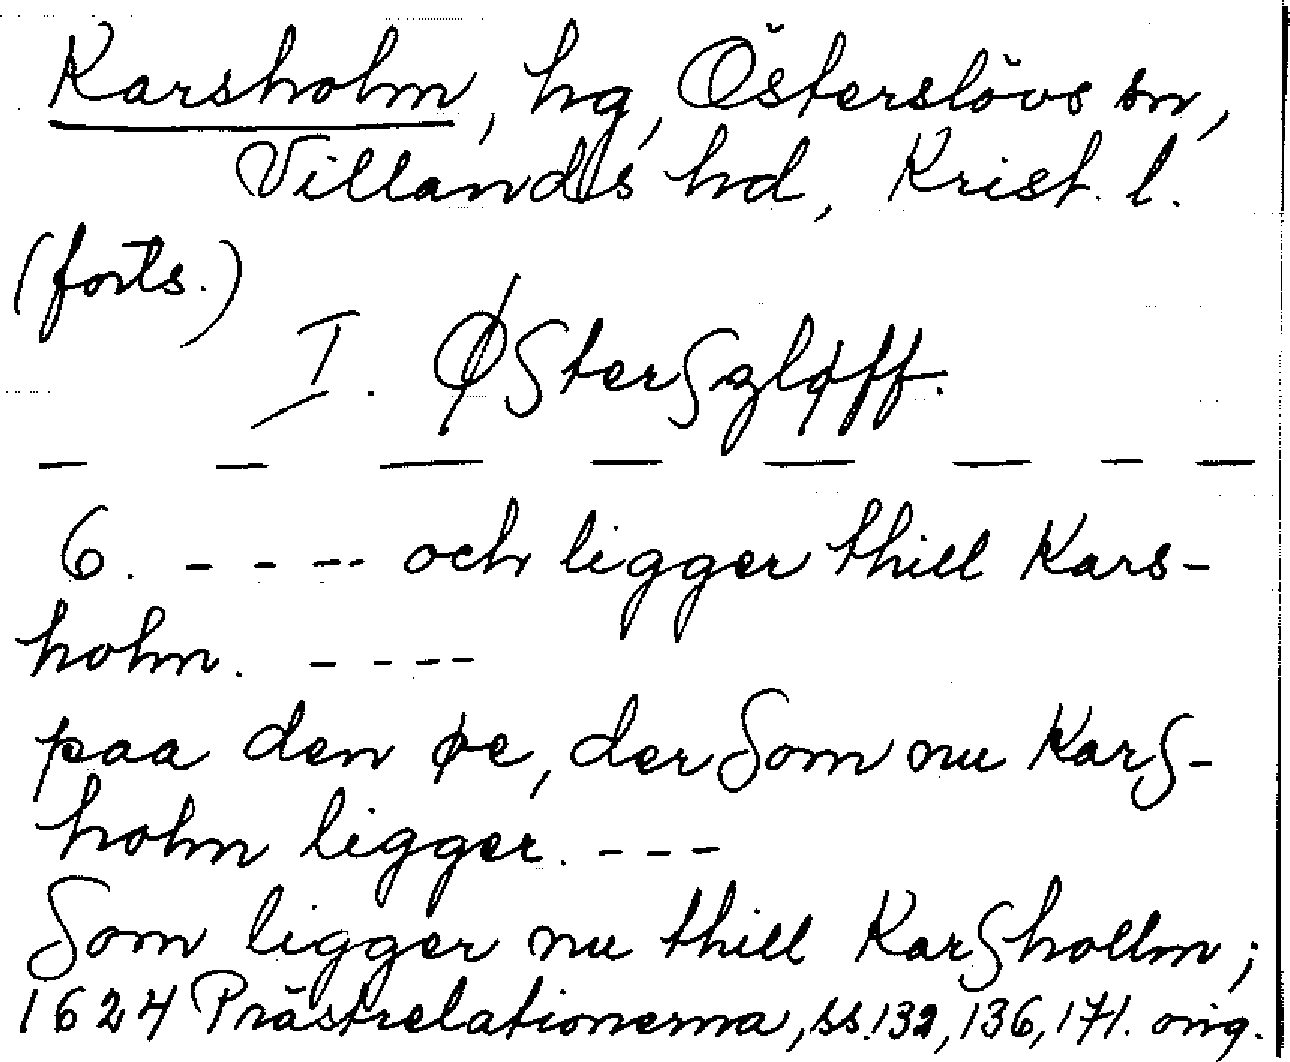 Karsholm, hg, Österslövs sn,
Villands hd, Krist. l.
(forts.)
I. Østerszløff.
— — — — — — — —
6. - - - -- och ligger thill Kars-
holm. - - - -
paa den øe, der som nu Kars-
holm ligger. - - -
Som ligger nu thill Karshollm;
1624 Prästrelationerna, ss. 132, 136, 171. orig.